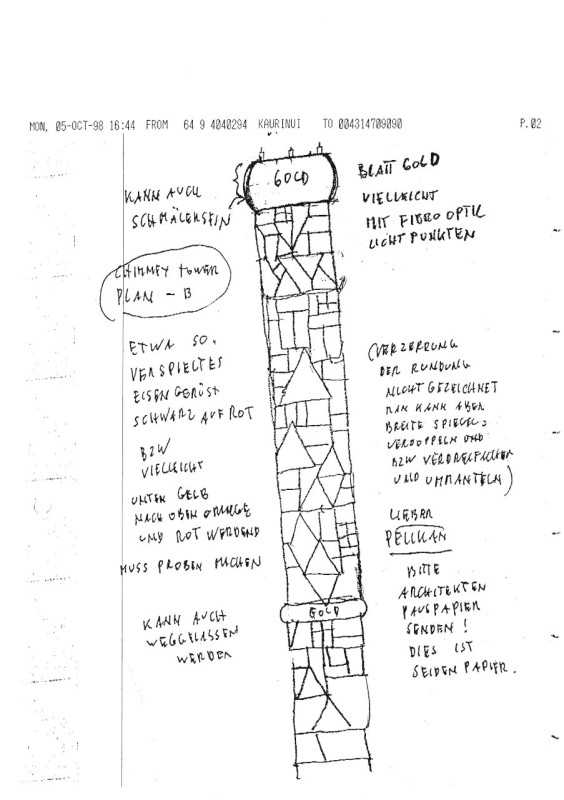 MON, 05-OCT-98 16:44 FROM 64 9 4040294 KAURINUI TO 004314709090 P.02
GOLD
BLATT GOLD
KANN AUCH
SCHMÄLER SEIN
VIELLEICHT
MIT FIBRO OPTIK
LICHTPUNKTEN
CHIMNEY TOWER
PLAN - B
ETWA SO.
VERSPIELTES
EISENGERÜST
SCHWARZ AUF ROT
BZW
VIELLEICHT
UNTEN GELB
NACH OBEN ORANGE
UND ROT WERDEND
MUSS PROBEN MACHEN
(VERZERRUNG
DER RUNDUNG
NICHT GEZEICHNET
MAN KANN ABER
BREITE SPIEGEL:
VERDOPPELN UND
BZW VERDREIFACHEN
UND UMMANTELN)
LIEBER
PELIKAN
BITTE
ARCHITEKTEN
PAUSPAPIER
SENDEN!
DIES IST
SEIDENPAPIER.
GOLD
KANN AUCH
WEGGELASSEN
WERDEN